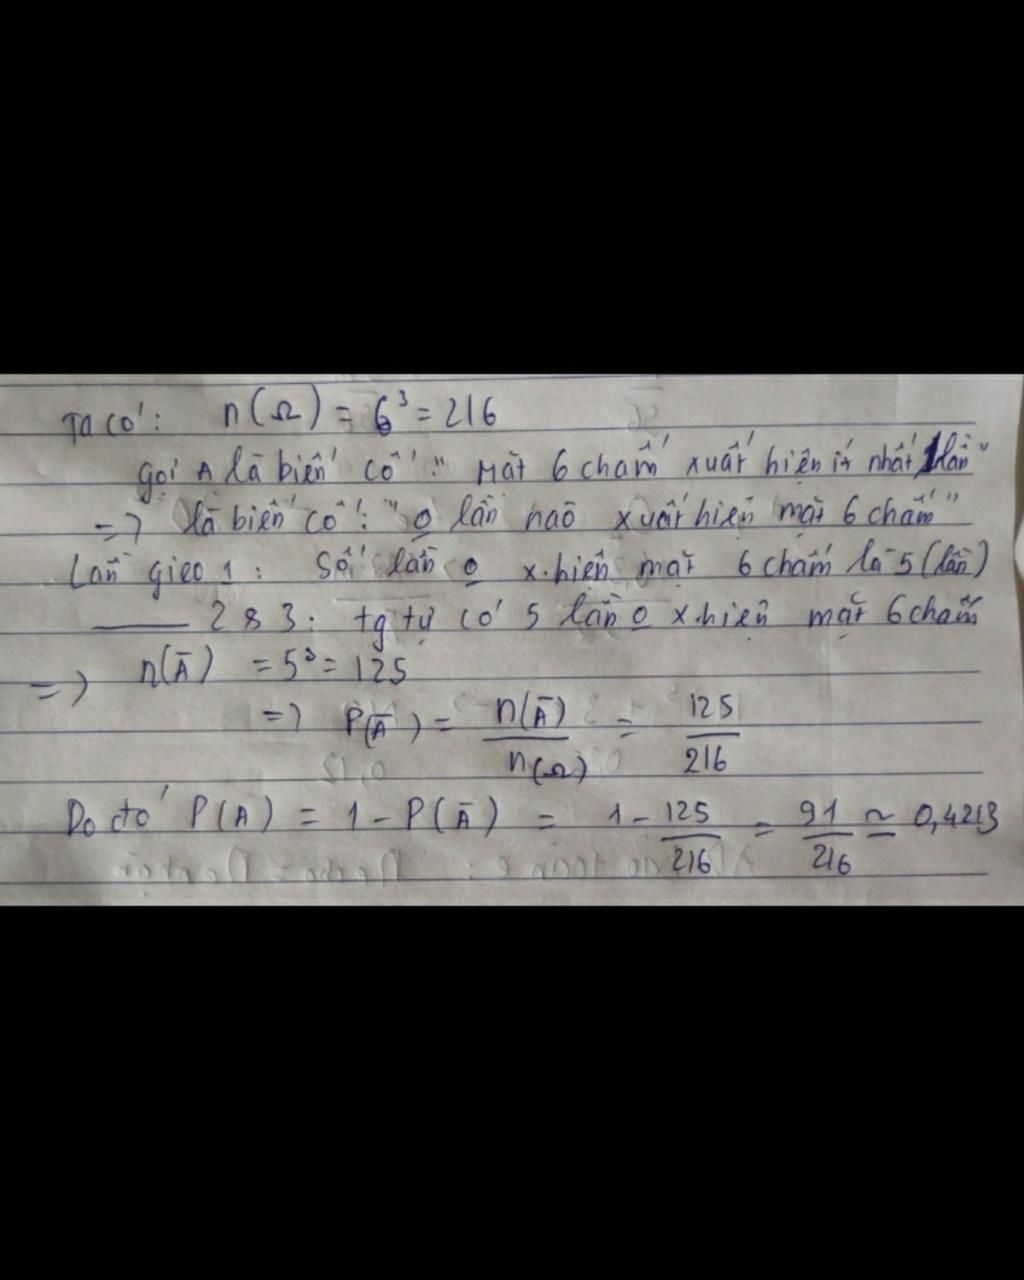 Ta có: n(Ω) = 6³ = 216
gọi A là biến cố: "Mặt 6 chấm xuất hiện ít nhất 1 lần"
=> là biến cố: "o lần nào xuất hiện mặt 6 chấm"
Lần gieo 1: Số lần o x.hiện mặt 6 chấm là 5 (lần)
——— 2 & 3: tg tự có 5 lần o x.hiện mặt 6 chấm
=> n(Ā) = 5³ = 125
=> P(Ā) = n(Ā)/n(Ω) = 125/216
Do đó P(A) = 1 - P(Ā) = 1 - 125/216 = 91/216 ≃ 0,4213